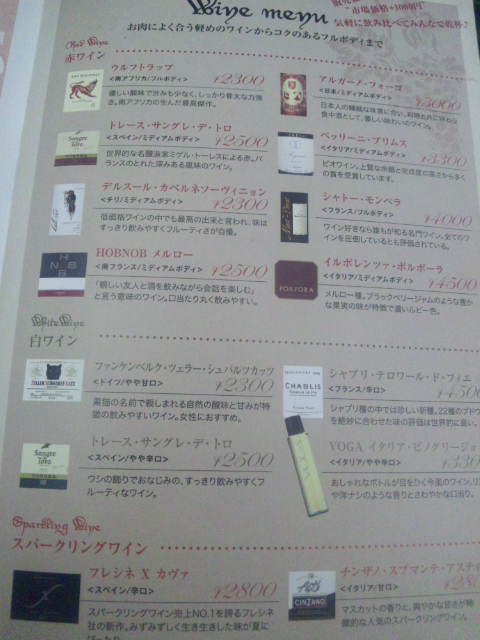 Wine menu
"市場価格+1000円"
気軽に飲み比べてみんなで乾杯♪
お肉によく合う軽めのワインからコクのあるフルボディまで
Red Wine
赤ワイン
ウルフトラップ
<南アフリカ/フルボディ> ¥2300
優しい酸味で甘みも少なく、しっかり骨太な力強さ。南アフリカの生んだ最高傑作。
トレース・サングレ・デ・トロ
<スペイン/ミディアムボディ> ¥2500
世界的な名醸造家ミゲル・トーレスによる赤。バランスのとれた深みある風味のワイン。
デルスール・カベルネソーヴィニョン
<チリ/ミディアムボディ> ¥2300
低価格ワインの中でも最高の出来と言われ、味はすっきり飲みやすくフルーティさが自慢。
HOBNOB メルロー
<南フランス/ミディアムボディ> ¥2500
「親しい友人と酒を飲みながら会話を楽しむ」と言う意味のワイン。口当たり丸く飲みやすい。
アルガーノ・フォーゴ
<日本/ミディアムボディ> ¥3000
日本人の繊細な味覚に合い、和時
食中酒として、優しい味わいのワイン。
ベッリーニ・プリムス
<イタリア/ミディアムボディ> ¥3300
ビオワイン。上質な余韻と完成度の高さから多くの賞を受賞しています。
シャトー・モンペラ
<フランス/フルボディ> ¥4000
ワイン好きなら誰もが知る名門ワイン。全てのワインを圧倒しているとも評価されている。
イルポレンツァ・ポルポーラ
<イタリア/ミディアムボディ> ¥4500
メルロー種。ブラックベリージャムのような豊かな果実の味が特徴で濃いルビー色。
PORPORA
White Wine
白ワイン
ファンケンベルク・ツェラー・シュバルツカッツ
<ドイツ/やや甘口> ¥2300
黒猫の名前で親しまれる自然の酸味と甘みが特徴の飲みやすいワイン。女性におすすめ。
トレース・サングレ・デ・トロ
<スペイン/やや辛口> ¥2500
ウシの飾りでおなじみの、すっきり飲みやすくフルーティなワイン。
CHABLIS
シャブリ・テロワール・ド・フィエ
<フランス/辛口> ¥450
シャブリ種の中では珍しい新種。22種のブドウを絶妙に合わせた味の評価は世界的に高い。
YOGA イタリア・ピノグリージョ
<イタリア/やや辛口> ¥330
おしゃれなボトルが目をひく今風のワイン。リ
や洋ナシのような香りとさわやかな口当り。
Sparkling Wine
スパークリングワイン
フレシネ X カヴァ
<スペイン/辛口> ¥2800
スパークリングワイン売上NO.1を誇るフレシネ社の新作。みずみずしく生き生きした味が夏に
CINZANO
チンザノ・スプマンテ・アスティ
<イタリア/甘口> ¥280
マスカットの香りと、爽やかな甘さが特徴的な人気のスパークリングワイン。